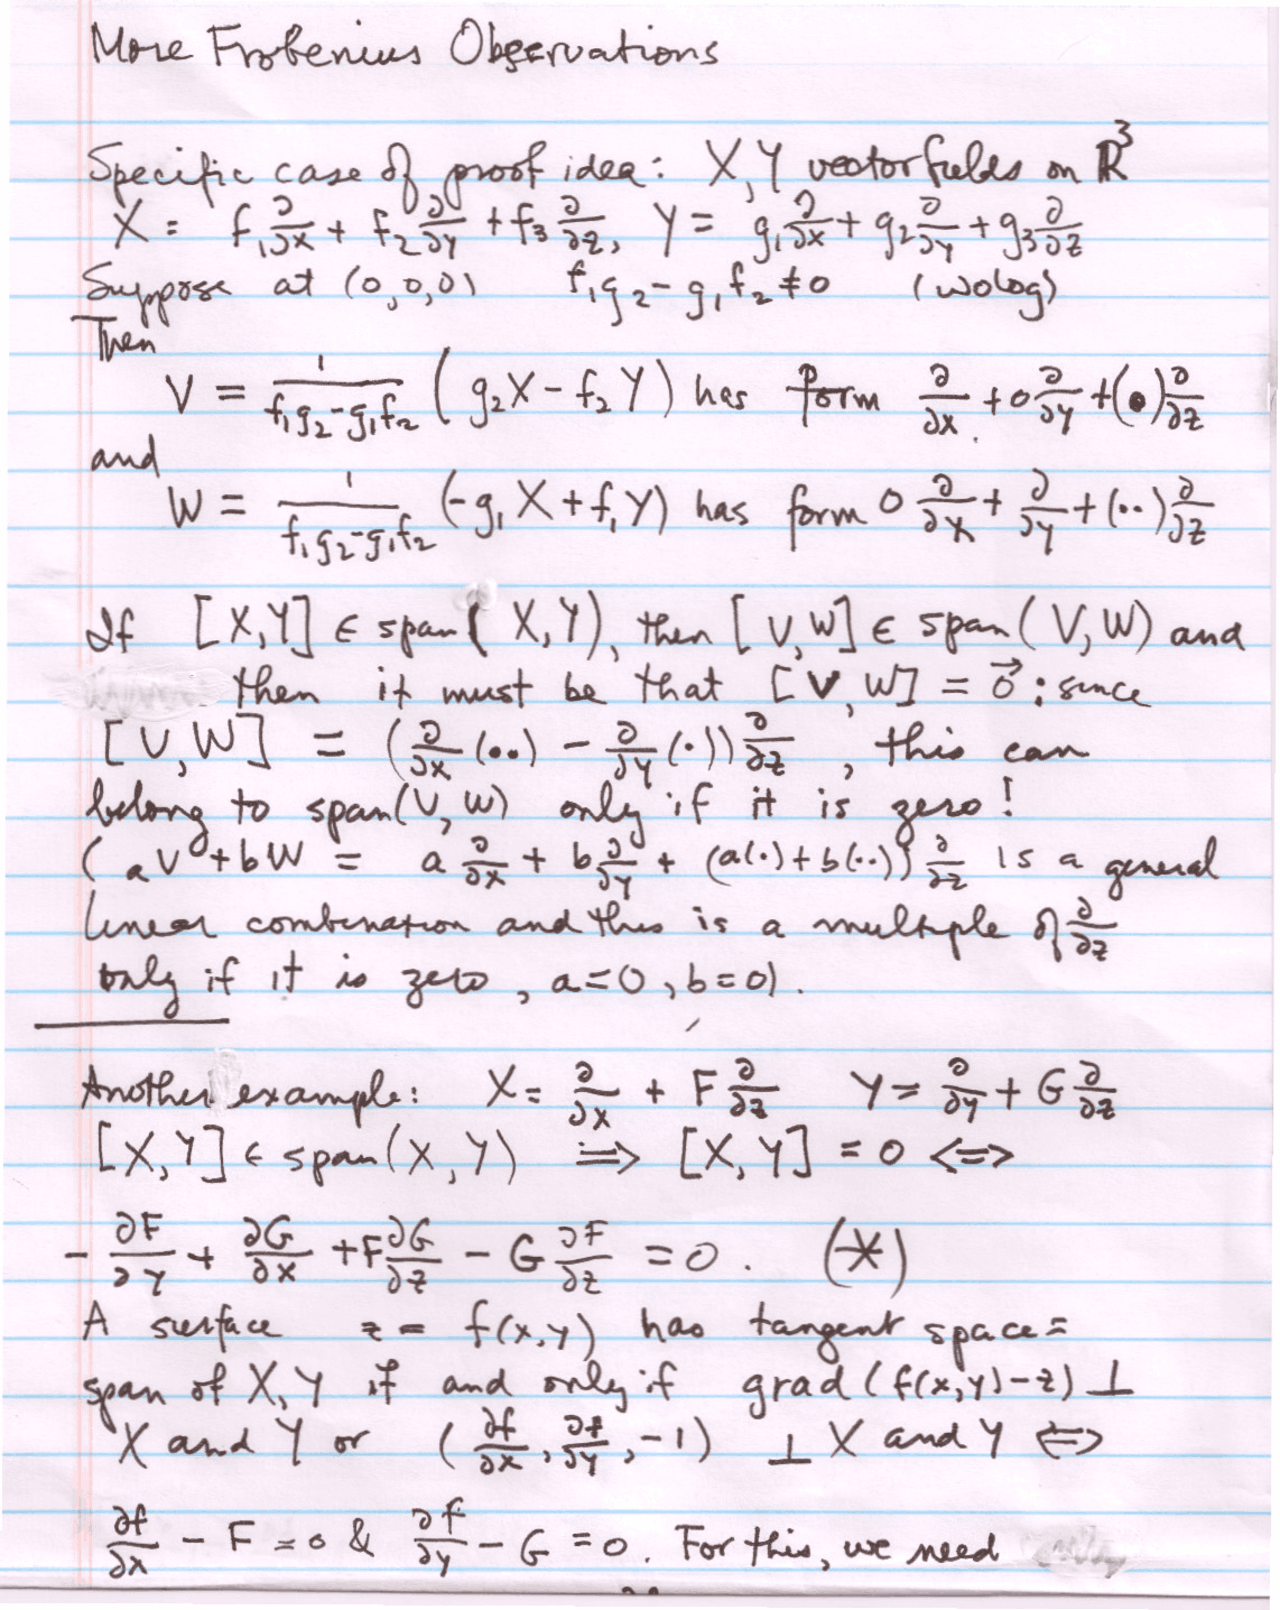 More Frobenius Observations
Specific case of proof idea: X, Y vector fields on ℝ³
X = f₁ ∂/∂x + f₂ ∂/∂y + f₃ ∂/∂z, Y = g₁ ∂/∂x + g₂ ∂/∂y + g₃ ∂/∂z
Suppose at (0,0,0) f₁g₂ - g₁f₂ ≠ 0 (wolog)
Then
V = 1/(f₁g₂-g₁f₂) (g₂X - f₂Y) has form ∂/∂x + 0 ∂/∂y + (•) ∂/∂z
and
W = 1/(f₁g₂-g₁f₂) (-g₁X + f₁Y) has form 0 ∂/∂x + ∂/∂y + (··) ∂/∂z
If [X,Y] ∈ span(X,Y), then [V,W] ∈ span(V,W) and
then it must be that [V,W] = 0⃗ : since
[V,W] = (∂/∂x (··) - ∂/∂y (·)) ∂/∂z, this can
belong to span(V,W) only if it is zero!
(aV + bW = a ∂/∂x + b ∂/∂y + (a(·) + b(··)) ∂/∂z is a general
linear combination and this is a multiple of ∂/∂z
only if it is zero, a=0, b=0).
Another example: X = ∂/∂x + F ∂/∂z Y = ∂/∂y + G ∂/∂z
[X,Y] ∈ span(X,Y) ⟹ [X,Y] = 0 ⟺
- ∂F/∂y + ∂G/∂x + F ∂G/∂z - G ∂F/∂z = 0. (*)
A surface z = f(x,y) has tangent space =
span of X, Y if and only if grad(f(x,y)-z) ⊥
X and Y or (∂f/∂x, ∂f/∂y, -1) ⊥ X and Y ⟺
∂f/∂x - F = 0 & ∂f/∂y - G = 0. For this, we need